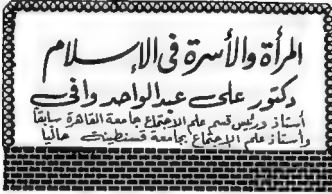 المرأة والأسرة فى الإسلام
دكتور على عبد الواحد وافى
أستاذ ورئيس قسم علم الاجتماع جامعة القاهرة سابقاً
وأستاذ علم الاجتماع بجامعة قسنطينة حالياً